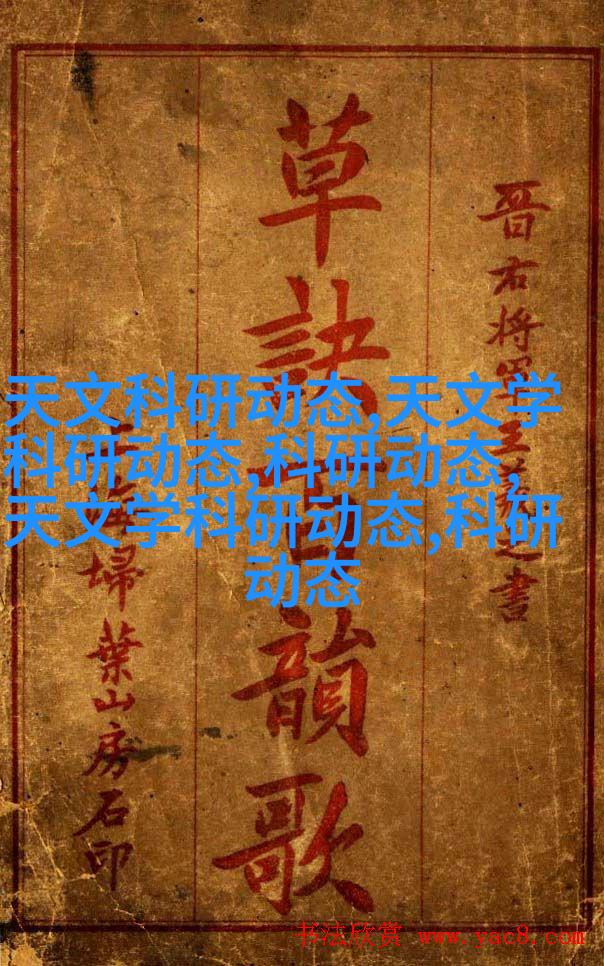 晋右將軍王羲之書
草訣百韻歌
上海掃葉山房石印
天文科研动态,天文学
科研动态,科研动态,
天文学科研动态,科研
动态
书法欣赏 www.yac8.com